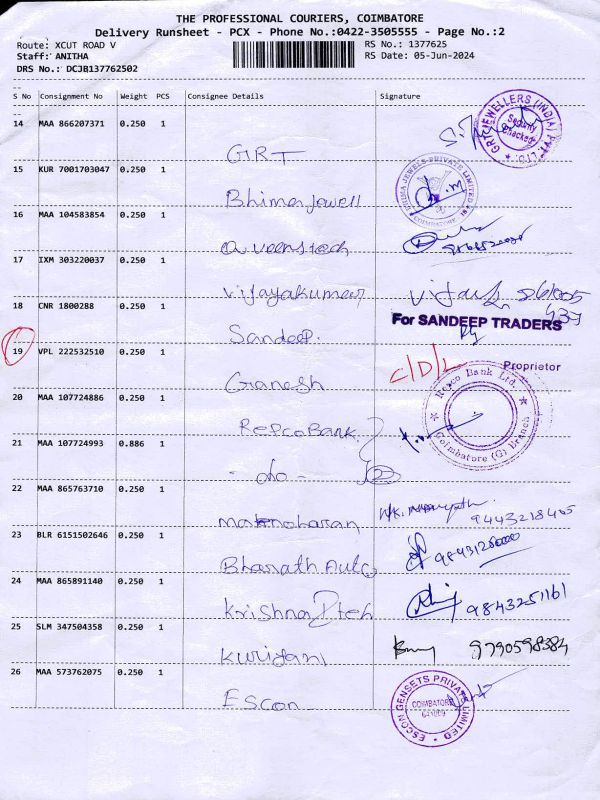 THE PROFESSIONAL COURIERS, COIMBATORE
Delivery Runsheet - PCX - Phone No.:0422-3505555 - Page No.:2
Route: XCUT ROAD V
RS No.: 1377625
Staff: ANITHA
RS Date: 05-Jun-2024
DRS No.: DCJB137762502
S No Consignment No Weight PCS Consignee Details Signature
14 MAA 866207371 0.250 1
GRT
GRT JEWELLERS (INDIA) PVT. LTD.
Security Checked
15 KUR 7001703047 0.250 1
Bhima Jewell
BHIMA JEWELS PRIVATE LIMITED
COIMBATORE
16 MAA 104583854 0.250 1
17 IXM 303220037 0.250 1
Vijayakumar
18 CNR 1800288 0.250 1
Sandeep.
For SANDEEP TRADERS
Proprietor
19 VPL 222532510 0.250 1
Ganesh
C/D/L
20 MAA 107724886 0.250 1
Repco Bank
Repco Bank Ltd.
Coimbatore (G) Branch
21 MAA 107724993 0.886 1
- do -
22 MAA 865763710 0.250 1
Manoharan
23 BLR 6151502646 0.250 1
Bharath Auto
24 MAA 865891140 0.250 1
Krishna teh
9843251161
25 SLM 347504358 0.250 1
9790598384
26 MAA 573762075 0.250 1
Escon
ESCON GENSETS PRIVATE LIMITED
COIMBATORE